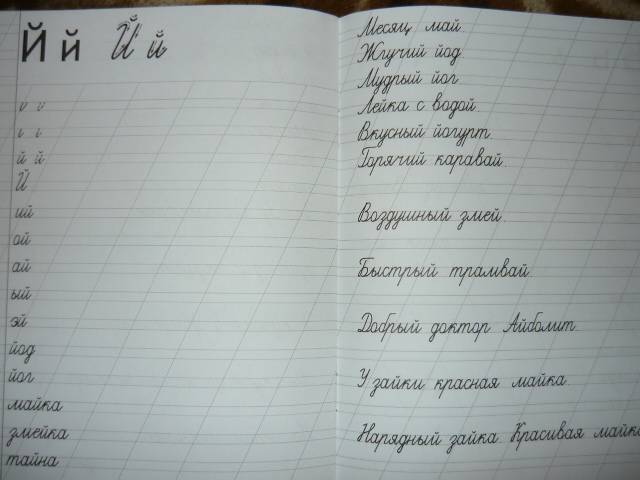 Й й Й й
и и
и и
й й
Й
ий
ой
ай
ый
эй
йод
йог
майка
змейка
тайна
Месяц май.
Жгучий йод.
Мудрый йог.
Лейка с водой.
Вкусный йогурт.
Горячий каравай.
Воздушный змей.
Быстрый трамвай.
Добрый доктор Айболит.
У зайки красная майка.
Нарядный зайка. Красивая майка